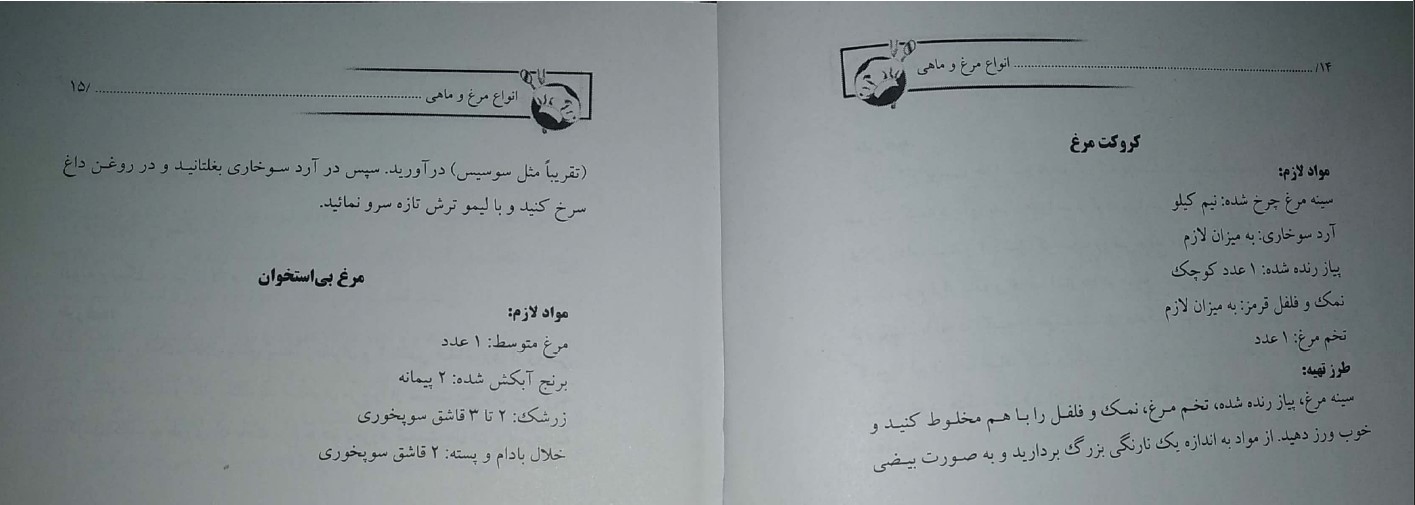 ۱۴/ ........................ انواع مرغ و ماهی
کروکت مرغ
مواد لازم:
سینه مرغ چرخ شده: نیم کیلو
آرد سوخاری: به میزان لازم
پیاز رنده شده: ۱ عدد کوچک
نمک و فلفل قرمز: به میزان لازم
تخم مرغ: ۱ عدد
طرز تهیه:
سینه مرغ، پیاز رنده شده، تخم مرغ، نمک و فلفل را با هم مخلوط کنید و
خوب ورز دهید. از مواد به اندازه یک نارنگی بزرگ بردارید و به صورت بیضی
انواع مرغ و ماهی ........................ /۱۵
(تقریباً مثل سوسیس) درآورید. سپس در آرد سوخاری بغلتانید و در روغن داغ
سرخ کنید و با لیمو ترش تازه سرو نمائید.
مرغ بی‌استخوان
مواد لازم:
مرغ متوسط: ۱ عدد
برنج آبکش شده: ۲ پیمانه
زرشک: ۲ تا ۳ قاشق سوپخوری
خلال بادام و پسته: ۲ قاشق سوپخوری